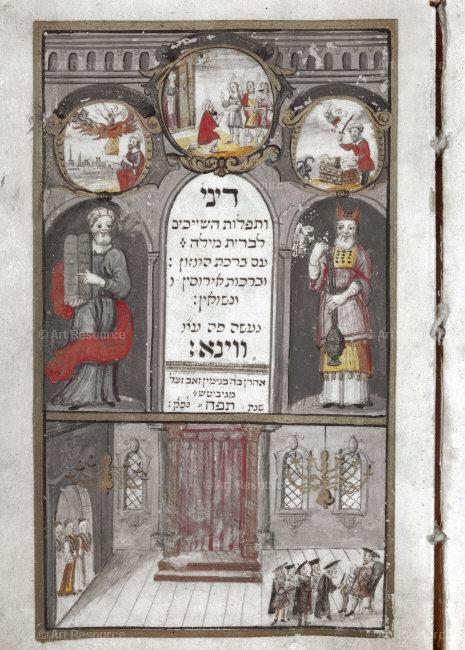 דיני
ותפלות השייכים
לברית מילה :
עם ברכת המזון :
וברכות אירוסין ו
ונשואין :
נעשה פה עיר
ווינא :
אהרן בה בנימין זאב זצל
מגיביטש
שנת תפח לפק :
© Art Resource
© Art Resource
© Art Resource
© Art Resource